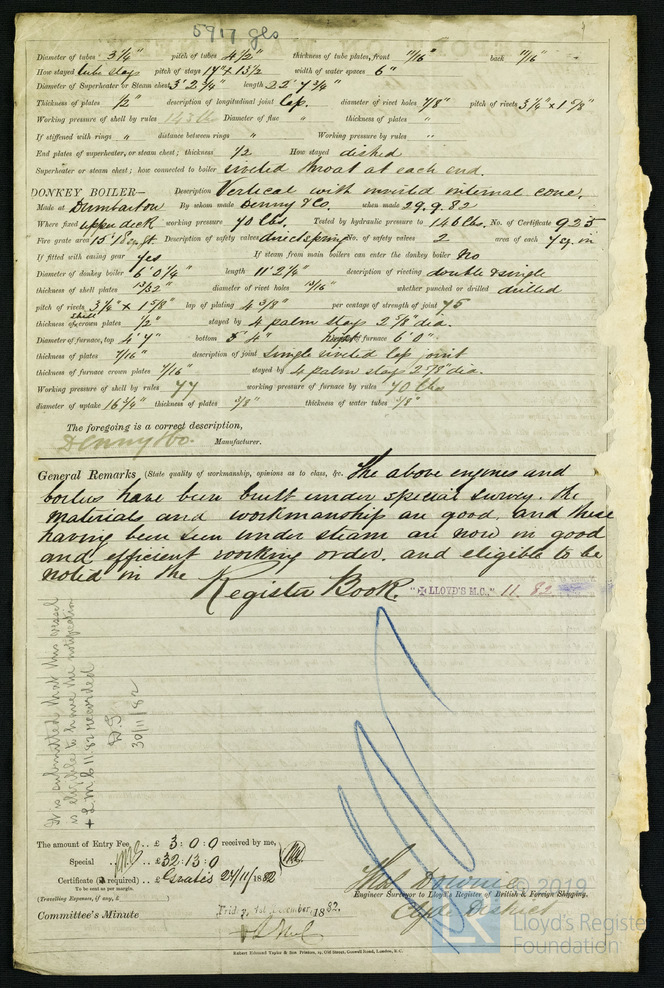 5917 gls
Diameter of tubes 3¼" pitch of tubes 4½" thickness of tube plates, front 11/16" back 11/16"
How stayed tube stays pitch of stays 14" x 13½ width of water spaces 6"
Diameter of Superheater or Steam chest 3' 2¼" length 22' 7¾"
Thickness of plates ½" description of longitudinal joint Lap. diameter of rivet holes 7/8" pitch of rivets 3¼" x 1 5/8"
Working pressure of shell by rules 143 lb Diameter of flue " thickness of plates "
If stiffened with rings " distance between rings " Working pressure by rules "
End plates of superheater, or steam chest; thickness ½ How stayed dished
Superheater or steam chest; how connected to boiler riveted throat at each end.
DONKEY BOILER— Description Vertical with inverted internal cone.
Made at Dumbarton By whom made Denny & Co. when made 29.9.82
Where fixed upper deck working pressure 70 lbs. Tested by hydraulic pressure to 140 lbs. No. of Certificate 925
Fire grate area 15½ sq. ft. Description of safety valves direct spring No. of safety valves 2 area of each 7 sq. in
If fitted with easing gear yes If steam from main boilers can enter the donkey boiler No
Diameter of donkey boiler 6' 0¼" length 11' 2½" description of riveting double & single
thickness of shell plates 13/32" diameter of rivet holes 13/16" whether punched or drilled drilled
pitch of rivets 3¼" x 1 5/8" lap of plating 4 3/8" per centage of strength of joint 75
thickness of shell crown plates ½" stayed by 4 palm stays 2 5/8" dia.
Diameter of furnace, top 4' 7" bottom 5' 4" height of furnace 6' 0"
thickness of plates 7/16" description of joint single riveted lap joint
thickness of furnace crown plates 7/16" stayed by 4 palm stays 2 7/8" dia.
Working pressure of shell by rules 77 working pressure of furnace by rules 70 lbs
diameter of uptake 16¾" thickness of plates 3/8" thickness of water tubes 3/8"
The foregoing is a correct description,
Denny & Co. Manufacturer.
General Remarks (State quality of workmanship, opinions as to class, &c. The above engines and
boilers have been built under special survey. the
materials and workmanship are good. and these
having been seen under steam are now in good
and efficient working order. and eligible to be
noted in the Register Book. "✠ LLOYD'S M.C." 11. 82.
It is submitted that this vessel
is eligible to have the notification
+ L.M.C. 11.82 recorded
30/11/82
The amount of Entry Fee .. £ 3 : 0 : 0 received by me,
Special .. £ 32 : 13 : 0
Certificate (if required) .. £ Gratis 24/11/1882
To be sent as per margin.
(Travelling Expenses, if any, £ )
Committee's Minute Friday, 1st December, 1882.
Thos Downie
Engineer Surveyor to Lloyd's Register of British & Foreign Shipping.
Clyde District
© 2019
Lloyd's Register
Foundation
Robert Edmund Taylor & Son Printers, 19, Old Street, Goswell Road, London, E.C.